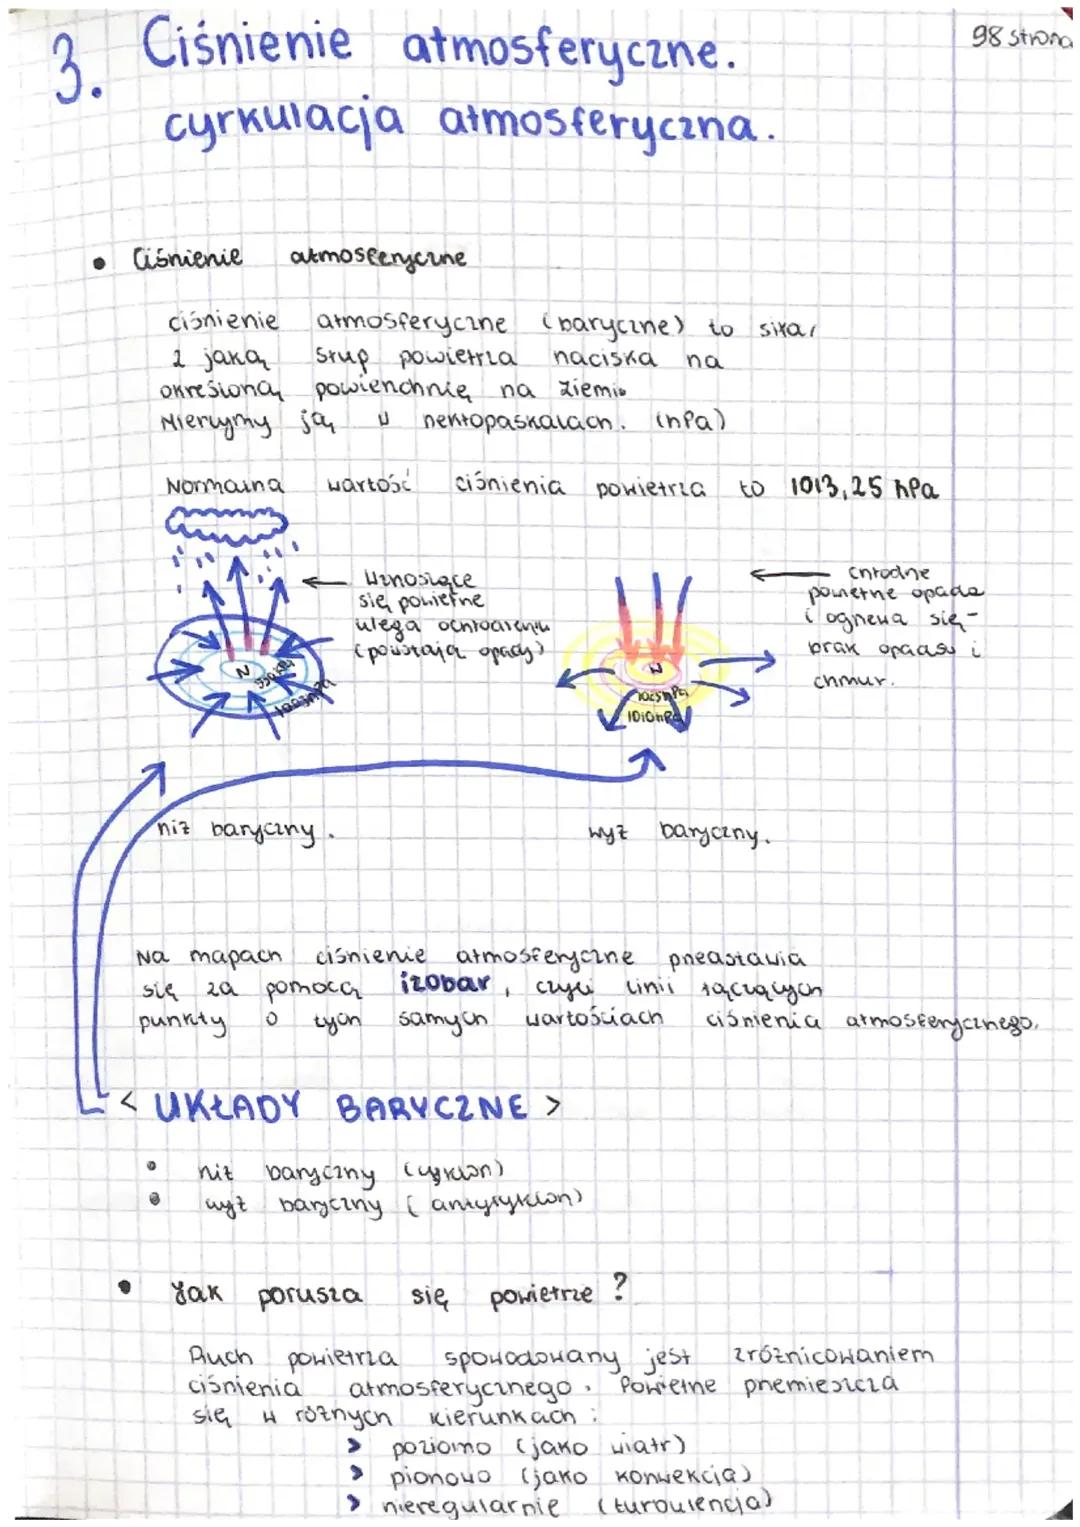 98 strona
3. Ciśnienie atmosferyczne.
cyrkulacja atmosferyczna.
• Ciśnienie atmosferyczne
ciśnienie atmosferyczne (baryczne) to siła,
z jaką słup powietrza naciska na
określoną powierzchnię na Ziemi.
Mierzymy ją w hektopaskalach. (hPa)
Normalna wartość ciśnienia powietrza to 1013,25 hPa
Wznoszące
się powietrze
ulega ochłodzeniu
(powstają opady)
N
990hPa
1005hPa
chłodne
powietrze opada
i ogrzewa się-
brak opadów i
chmur.
W
1025hPa
1010hPa
niż baryczny.
wyż baryczny.
Na mapach ciśnienie atmosferyczne przedstawia
się za pomocą izobar, czyli linii łączących
punkty o tych samych wartościach ciśnienia atmosferycznego.
< UKŁADY BARYCZNE >
• niż baryczny (cyklon)
• wyż baryczny (antycyklon)
• Jak porusza się powietrze?
Ruch powietrza spowodowany jest zróżnicowaniem
ciśnienia atmosferycznego. Powietrze przemieszcza
się w różnych kierunkach:
> poziomo (jako wiatr)
> pionowo (jako konwekcja)
> nieregularnie (turbulencja)